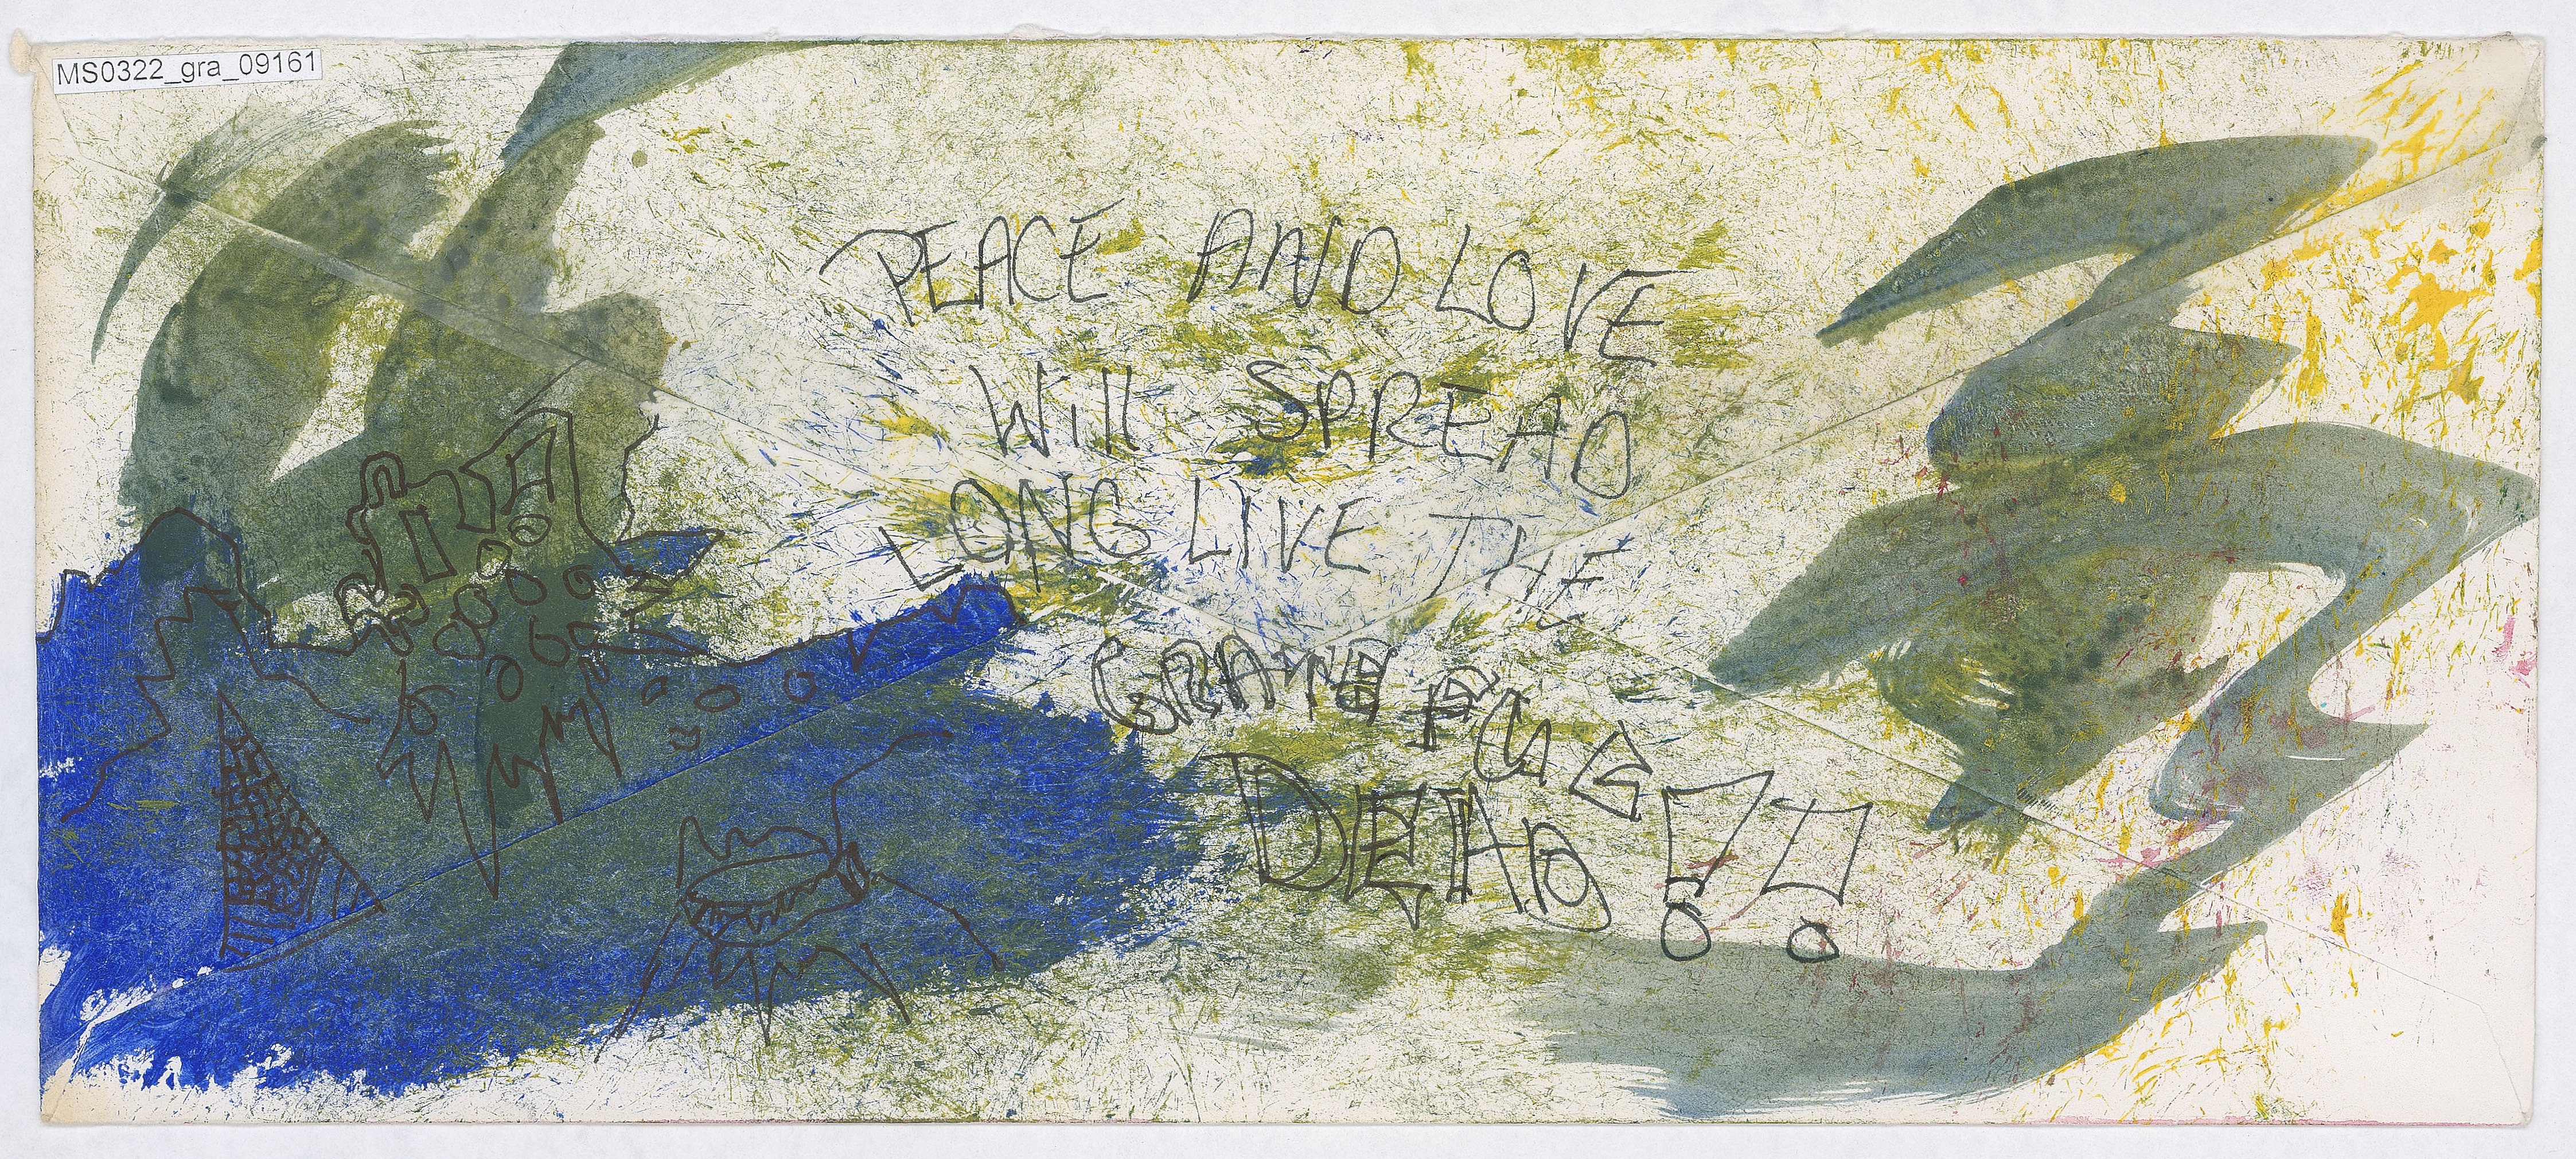 MS0322_gra_09161
PEACE AND LOVE
Will SPREAD
LONG LIVE THE
GRATEFUL
DEAD!!